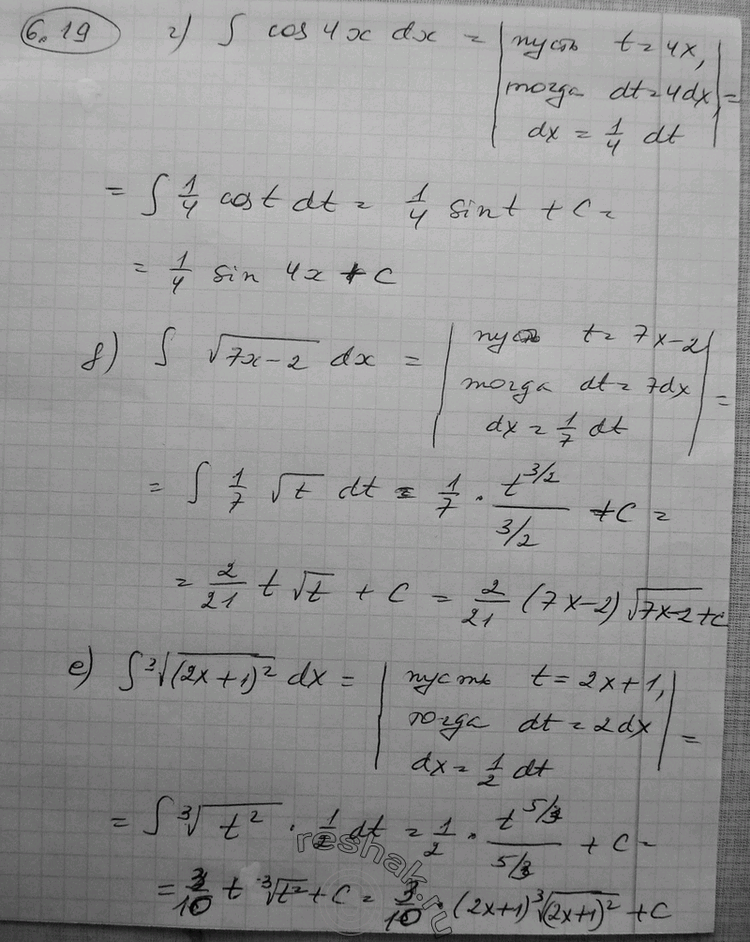 6.19 г) ∫ cos 4x dx = | пусть t = 4x,
тогда dt = 4dx | =
dx = 1/4 dt
= ∫ 1/4 cos t dt = 1/4 sin t + C =
= 1/4 sin 4x + C
д) ∫ √(7x-2) dx = | пусть t = 7x-2
тогда dt = 7dx | =
dx = 1/7 dt
= ∫ 1/7 √t dt = 1/7 · t^(3/2) / (3/2) + C =
= 2/21 t √t + C = 2/21 (7x-2) √(7x-2) + C
е) ∫ ∛((2x+1)²) dx = | пусть t = 2x+1,
тогда dt = 2dx | =
dx = 1/2 dt
= ∫ ∛(t²) · 1/2 dt = 1/2 · t^(5/3) / (5/3) + C =
= 3/10 t ∛(t²) + C = 3/10 · (2x+1) ∛((2x+1)²) + C
reshak.ru